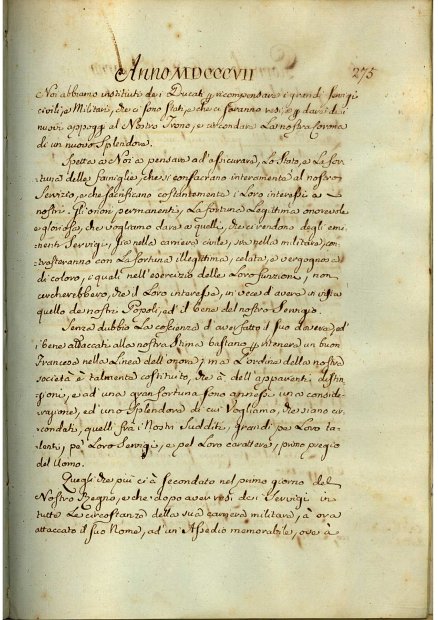 Anno MDCCCVII 275
Noi abbiamo instituiti de i Ducati p ricompensare i grandi Servigi
civili, e Militari, che ci sono stati, e che ci saranno resi, e p darci dei
nuovi appoggi al Nostro Trono, e circondare La nostra Corona
di un nuovo Splendore.
Spetta a Noi a pensare ad assicurare Lo Stato, e La for=
tuna delle famiglie, che si consacrano interamente al nostro
Servizio, e che sacrificano costantemente i Loro interessi a
nostri. Gli onori permanenti, La fortuna Legittima onorevole
e gloriosa, che vogliamo dare a quelli, che ci rendono degli emi=
nenti Servigi, sia nella carriera civile, sia nella militare, con
trasteranno con La fortuna illegittima, celata, e vergognosa
di coloro, i quali nell'esercizio delle Loro funzioni, non
cercherebbero, che il Loro interesse, in vece d'avere in vista
quello de nostri Popoli, ed il bene del nostro Servigio.
Senza dubbio La coscienza d'aver fatto il suo dovere, ed
i bene attaccati alla nostra Stima bastano p ritenere un buon
Francese nella Linea dell'onore; ma L'ordine della nostra
società è talmente costituito, che à dell'apparenti distin
zioni, e ad una gran fortuna sono annessi una conside=
razione, ed uno Splendore di cui Vogliamo, che siano cir
condati, quelli fra i Nostri Sudditi, grandi pe' Loro ta=
lenti, pe' Loro Servigi, e pel Loro carattere, primo pregio
del Uomo.
Quegli che più ci à secondato nel primo giorno del
Nostro Regno, e che dopo aver resi dei Servigi in
tutte Le circostanze della sua carriera militare, à ora
attaccato il suo Nome, ad un Assedio memorabile, ove à